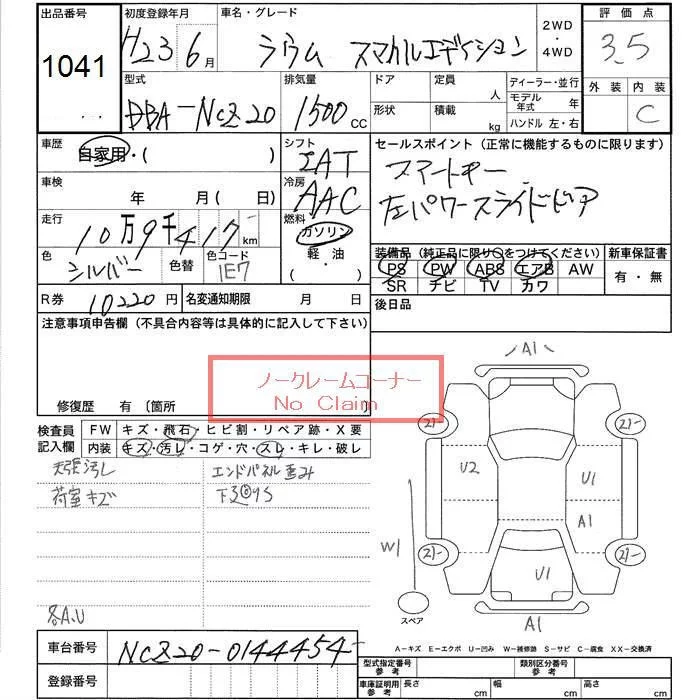 出品番号 初度登録年月 車名・グレード 2WD・4WD 評価点
1041 H23 6月 ラウム スマイルエディション 3.5
型式 排気量 ドア 定員 人 ディーラー・並行 外装 内装
DBA-NCZ20 1500CC 形状 積載 kg モデル年式 年 C
ハンドル 左・右
車歴 自家用・( ) シフト IAT セールスポイント(正常に機能するものに限ります)
車検 年 月(日) 冷房 AAC スマートキー
左パワースライドドア
走行 10万9千417km 燃料 ガソリン
軽・油
・( )
色 シルバー 色替 色コード 1E7
装備品(純正品に限り○をつけてください) 新車保証書
PS PW ABS エアB AW 有・無
SR ナビ TV カワ
R券 10220円 名変通知期限 月 日 後日品
注意事項申告欄(不具合内容等は具体的に記入して下さい)
ノークレームコーナー
No Claim
修復歴 有 〔箇所
検査員記入欄 FW キズ・飛石・ヒビ割・リペア跡・X要
内装 キズ・汚レ・コゲ・穴・スレ・キレ・破レ
天張汚し エンドパネル歪み
荷室キズ
各A、U
A1
21- 21-
U2 U1
A1
W1 21- 21-
U1
スペア A1
A-キズ E-エクボ U-凹み W-補修跡 S-サビ C-腐食 XX-交換済
車台番号 NCZ20-0144454
登録番号
型式指定番号 参考 類別区分番号 参考
車庫証明用 参考 長さ cm 幅 cm 高さ cm